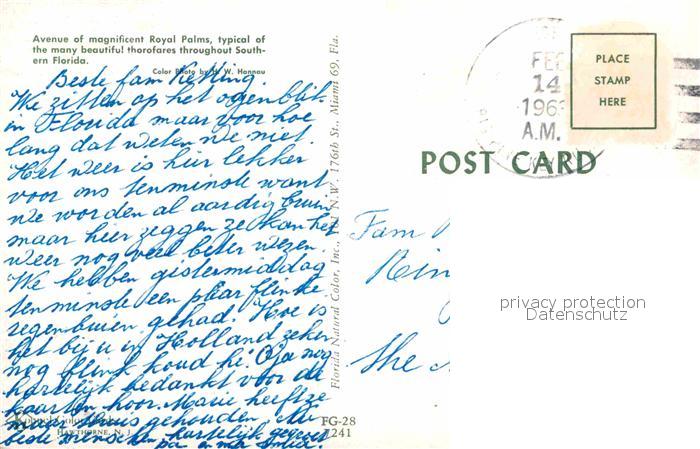 Avenue of magnificent Royal Palms, typical of
the many beautiful thorofares throughout South-
ern Florida.
Color Photo by H. W. Hannau
Beste fam Ketting.
We zitten op het ogenblik
in Florida maar voor hoe
lang dat weten we niet.
Het weer is hier lekker
voor ons tenminste want
we worden al aardig bruin
maar hier zeggen ze kan het
weer nog veel beter wezen.
We hebben gistermiddag
tenminste een paar flinke
regenbuien gehad. Hoe is
het bij u in Holland zeker
nog flink koud hè! O ja nog
hartelijk bedankt voor de
kaarten hoor. Marie heeft ze
thuis gehouden,
beste mensen hartelijk gegroet
pa en ma
HAWTHORNE, N. J.
FG-28
Florida Natural Color, Inc., N.W. 176th St., Miami 69, Fla.
PLACE
STAMP
HERE
FEB
14
A.M.
POST CARD
Fam
The
privacy protection
Datenschutz